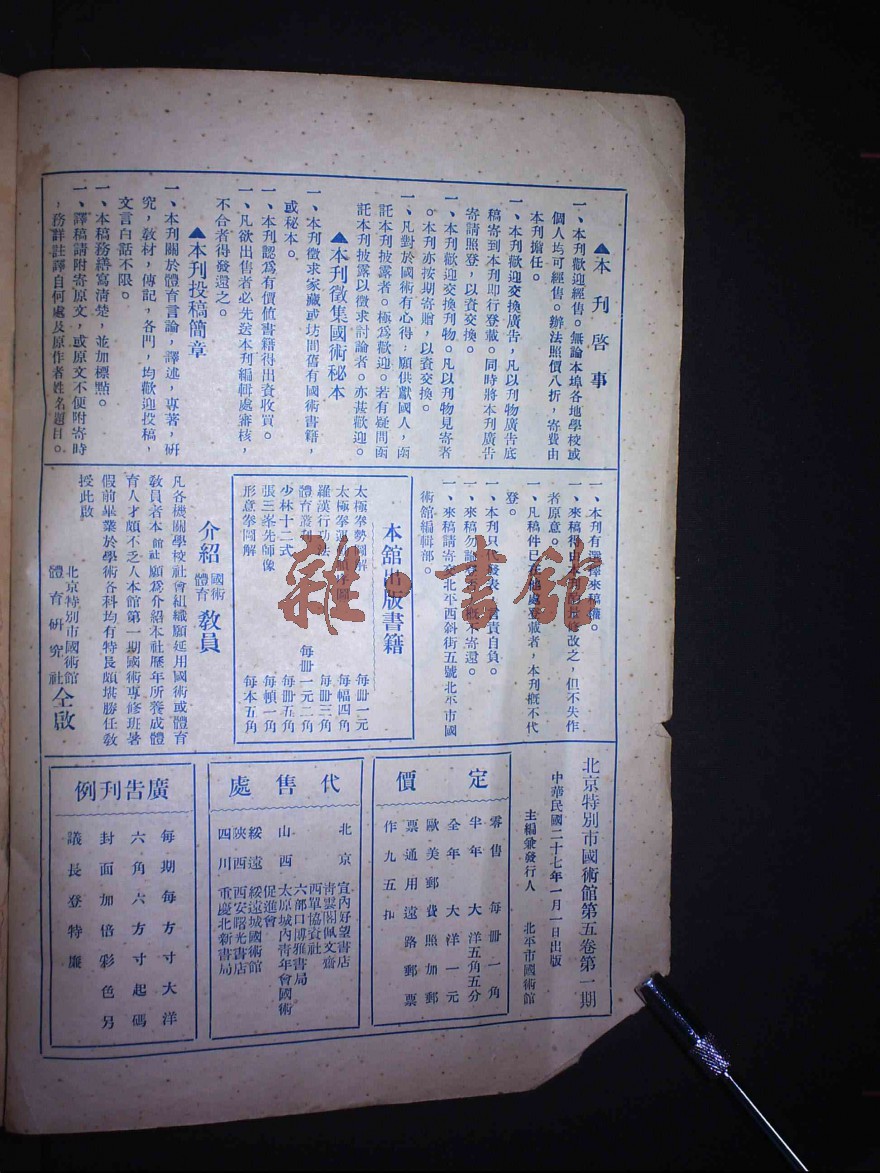 ▲本刊啓事
一、本刊歡迎經售。無論本埠各地學校或
個人均可經售。辦法照價八折，寄費由
本刊擔任。
一、本刊歡迎交換廣告，凡以刊物廣告底
稿寄到本刊即行登載。同時將本刊廣告
寄請照登，以資交換。
一、本刊歡迎交換刊物。凡以刊物見寄者
。本刊亦按期寄贈，以資交換。
一、凡對於國術有心得，願供獻國人，函
託本刊披露者。極爲歡迎。若有疑問函
託本刊披露以徵求討論者。亦甚歡迎。
▲本刊徵集國術秘本
一、本刊徵求家藏或坊間舊有國術書籍，
或秘本。
一、本刊認爲有價値書籍得出資收買。
一、凡欲出售者必先送本刊編輯處審核，
不合者得發還之。
▲本刊投稿簡章
一、本刊關於體育言論，譯述，專著，硏
究，敎材，傳記，各門，均歡迎投稿，
文言白話不限。
一、本稿務繕寫清楚，並加標點。
一、譯稿請附寄原文，或原文不便附寄時
，務詳註譯自何處及原作者姓名題目。
一、本刊有選擇來稿權。
一、來稿得由本刊酌量修改之，但不失作
者原意。
一、凡稿件已在他處登載者，本刊概不代
登。
一、本刊只代發表，言責自負。
一、來稿勿論登否概不寄還。
一、來稿請寄北平西斜街五號北平市國
術館編輯部。
本館出版書籍
太極拳勢圖解 每冊一元
太極拳運動順序圖 每幅四角
羅漢行功法 每冊三角
體育叢刊 每冊一元二角
少林十二式 每冊五角
張三峯先師像 每幀一角
形意拳圖解 每本五角
介紹國術體育敎員
凡各機關學校社會組織願延用國術或體育
敎員者本館社願爲介紹本社歷年所養成體
育人才頗不乏人本館第一期國術專修班暑
假前畢業於學術各科均有特長頗堪勝任敎
授此啟
北京特別市國術館
體育硏究社 仝啟
北京特別市國術館第五卷第一期
中華民國二十七年一月一日出版
主編兼發行人 北平市國術館
定價
零售 每冊一角
半年 大洋五角五分
全年 大洋一元
歐美郵費照加郵
票通用遠路郵票
作九五扣
代售處
北京 宣內好望書店
青雲閣佩文齋
西單協資社
六部口博雅書局
山西 太原城內青年會國術
促進會
綏遠 綏遠城國術館
陝西 西安曙光書店
四川 重慶北新書局
廣告刊例
每期每方寸大洋
六角六方寸起碼
封面加倍彩色另
議長登特廉
雜·書館